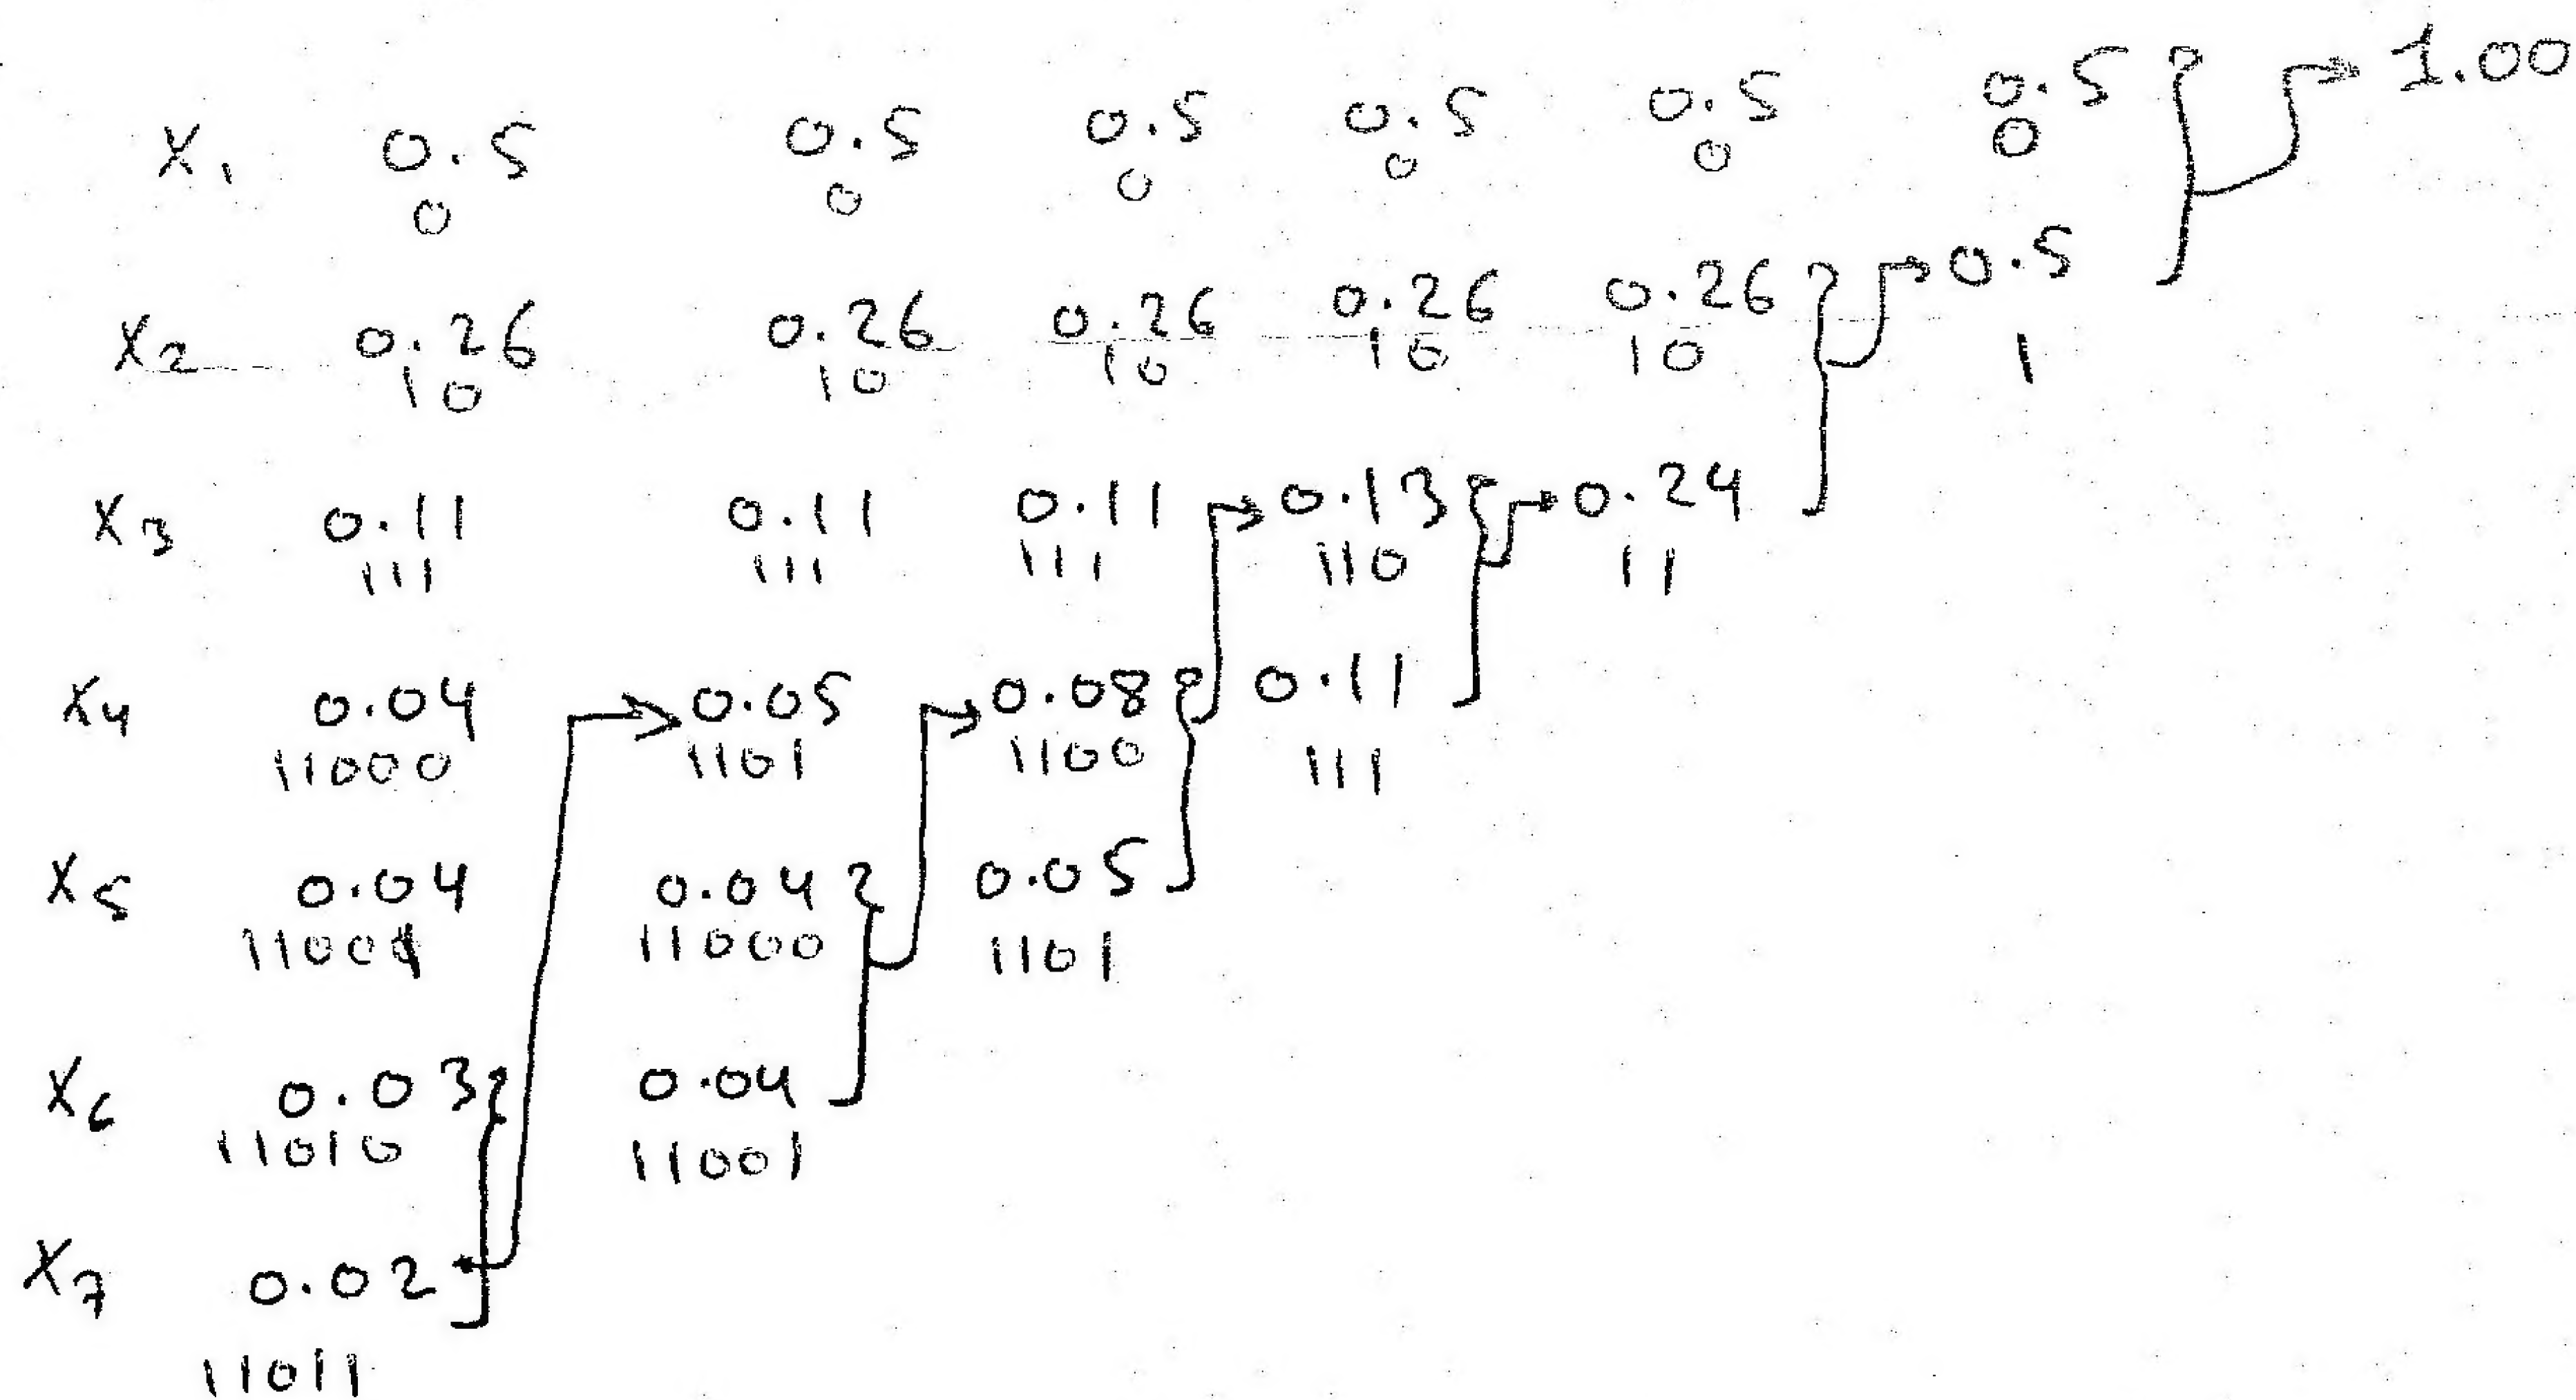 x1 0.5 0.5 0.5 0.5 0.5 0.5 1.00
0 0 0 0 0 0
x2 0.26 0.26 0.26 0.26 0.26 0.5
10 10 10 10 10 1
x3 0.11 0.11 0.11 0.13 0.24
111 111 111 110 11
x4 0.04 0.05 0.08 0.11
11000 1101 1100 111
x5 0.04 0.04 0.05
11001 11000 1101
x6 0.03 0.04
11010 11001
x7 0.02
11011